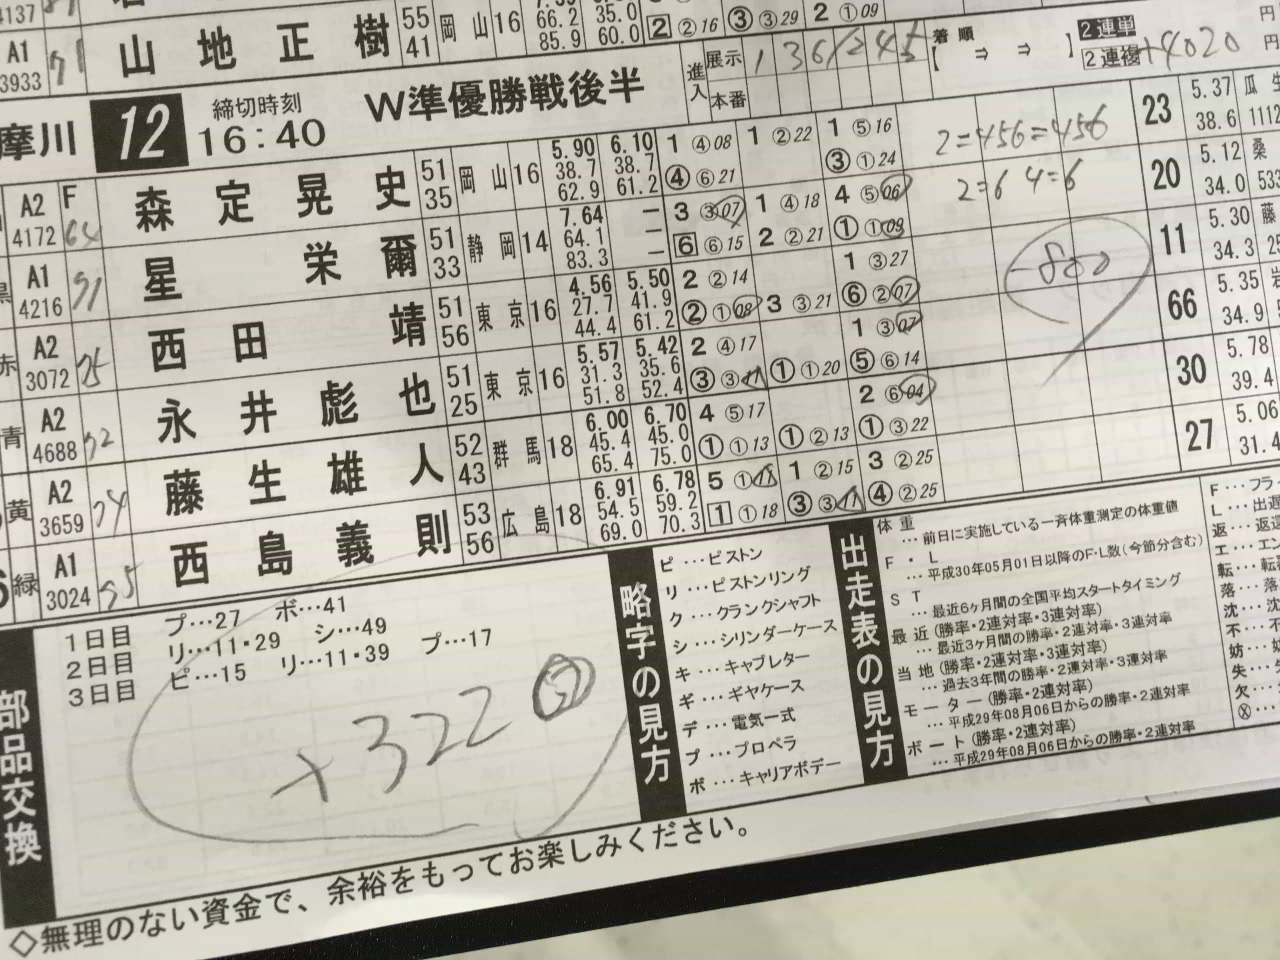 A1 3933 71 山地正樹 55 41 岡山16 66.2 85.9 35.0 60.0 2 ②16 ③ ③29 2 ①09
進入 展示 136/245
本番
着順 [ ⇒ ⇒ ] 2連単 円
2連複 +4020 円
摩川 12 締切時刻 16:40 W準優勝戦後半
A2 4172 F 64 森定晃史 51 35 岡山16 5.90 38.7 62.9 6.10 38.7 61.2 1 ④08 ④ ⑥21 1 ②22 1 ⑤16 ③ ①24 2=456=456 23 5.37 38.6
A1 4216 星栄爾 51 33 静岡14 7.64 64.1 83.3 — — — 3 ③07 6 ⑥15 1 ④18 2 ②21 4 ⑤06 ① ①09 2=6 4=6 20 5.12 34.0
赤 A2 3072 西田靖 51 56 東京16 4.56 27.7 44.4 5.50 41.9 61.2 2 ②14 ② ①08 3 ③21 1 ③27 ⑥ ②07 -800 11 5.30 34.3
青 A2 4688 永井彪也 51 25 東京16 5.57 31.3 51.8 5.42 35.6 52.4 2 ④17 ③ ③11 ① ①20 1 ③07 ⑤ ⑥14 66 5.35 34.9
黄 A2 3659 藤生雄人 52 43 群馬18 6.00 45.4 65.4 6.70 45.0 75.0 4 ⑤17 ① ①13 ① ②13 2 ⑥04 ① ③22 30 5.78 39.4
緑 A1 3024 西島義則 53 56 広島18 6.91 54.5 69.0 6.78 59.2 70.3 5 ①15 1 ①18 1 ②15 ③ ③11 3 ②25 ④ ②25 27 5.06 31.4
部品交換
1日目 プ…27 ボ…41
2日目 リ…11・29 シ…49
3日目 ピ…15 リ…11・39 プ…17
×322
略字の見方
ピ…ピストン
リ…ピストンリング
ク…クランクシャフト
シ…シリンダーケース
キ…キャブレター
ギ…ギヤケース
デ…電気一式
プ…プロペラ
ボ…キャリアボデー
出走表の見方
体重
…前日に実施している一斉体重測定の体重値
F・L
…平成30年05月01日以降のF・L数(今節分含む)
ST
…最近6ヶ月間の全国平均スタートタイミング
最近(勝率・2連対率・3連対率)
…最近3ヶ月間の勝率・2連対率・3連対率
当地(勝率・2連対率・3連対率)
…過去3年間の勝率・2連対率・3連対率
モーター(勝率・2連対率)
…平成29年08月06日からの勝率・2連対率
ボート(勝率・2連対率)
…平成29年08月06日からの勝率・2連対率
F…フラ
L…出遅
返…返還
エ…エン
転…転覆
落…落
沈…沈
不…不
妨…妨
失…失
欠…欠
Ⓧ…
◇無理のない資金で、余裕をもってお楽しみください。